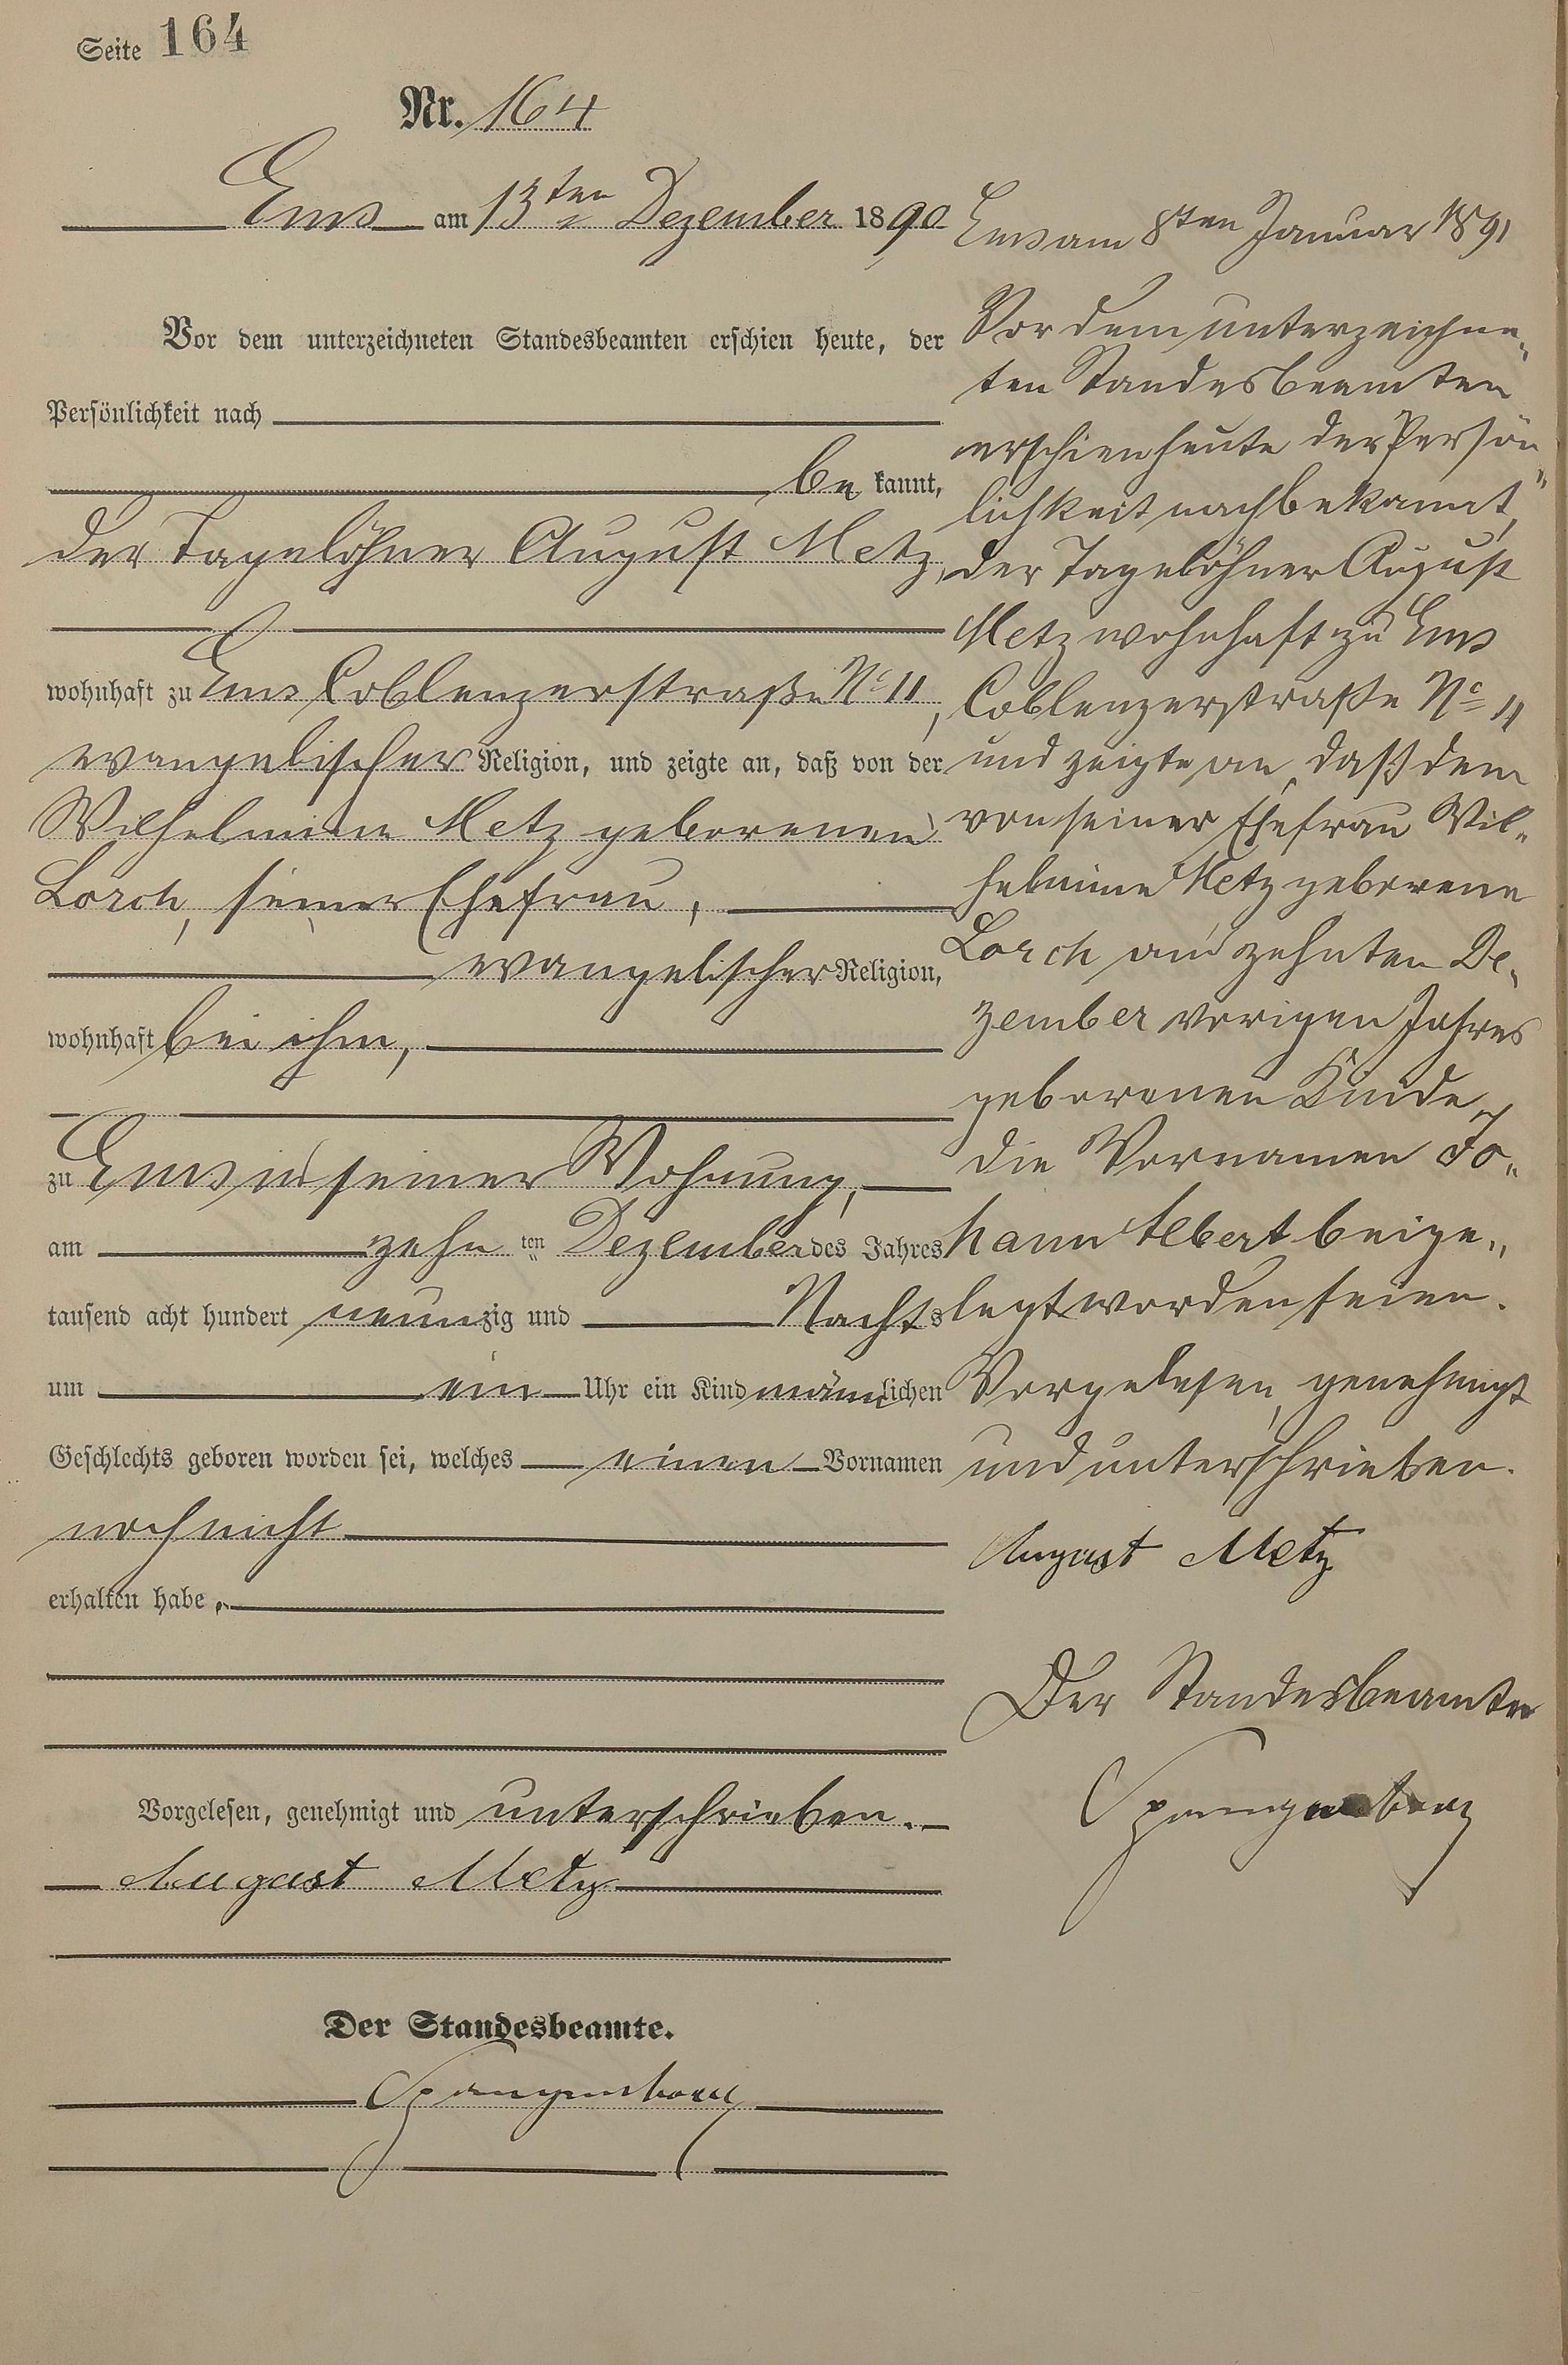 Seite 164
Nr. 164
Ems am 13ten Dezember 1890
Vor dem unterzeichneten Standesbeamten erschien heute, der
Persönlichkeit nach
be kannt,
der Tagelöhner August Metz,
wohnhaft zu Ems Coblenzerstraße No 11,
evangelischer Religion, und zeigte an, daß von der
Wilhelmine Metz geborenen
Lorch, seiner Ehefrau,
evangelischer Religion,
wohnhaft bei ihm,
zu Ems in seiner Wohnung,
am zehn ten Dezember des Jahres
tausend acht hundert neunzig und Nachts
um ein Uhr ein Kind männlichen
Geschlechts geboren worden sei, welches einen Vornamen
noch nicht
erhalten habe.
Vorgelesen, genehmigt und unterschrieben.
August Metz
Der Standesbeamte.
Spangenberg
Ems am 8ten Januar 1891
Vor dem unterzeichne-
ten Standesbeamten
erschien heute der Persön-
lichkeit nach bekannt,
der Tagelöhner August
Metz wohnhaft zu Ems
Coblenzerstraße No 11
und zeigte an, daß dem
von seiner Ehefrau Wil-
helmine Metz geborene
Lorch am zehnten De-
zember vorigen Jahres
geborenen Kinde,
die Vornamen Jo-
hann Albert beige-
legt worden seien.
Vorgelesen, genehmigt
und unterschrieben.
August Metz
Der Standesbeamte
Spangenberg